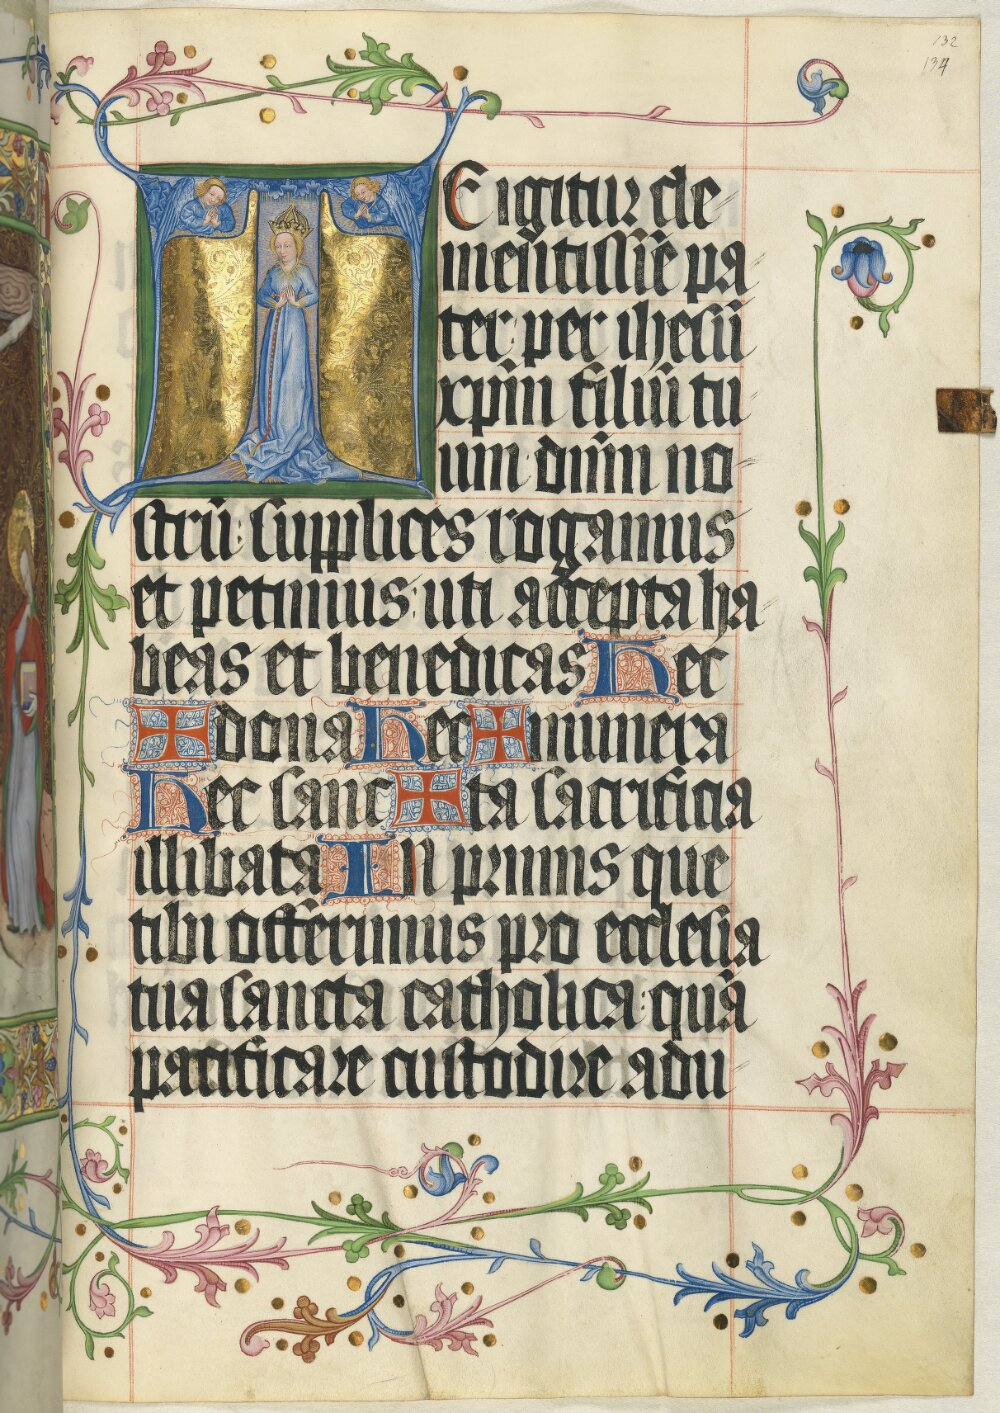 132
134
TE igitur cle
mentissīe pa
ter: per ihesū
xp̄m filiū tu
um dn̄m no
strū: supplices rogamus
et petimus: uti accepta ha
beas et benedicas Hec
✠ dona Hec ✠ munera
Hec sanc ✠ ta sacrificia
illibata In primis que
tibi offerimus pro ecclesia
tua sancta catholica: quā
pacificare custodire adu